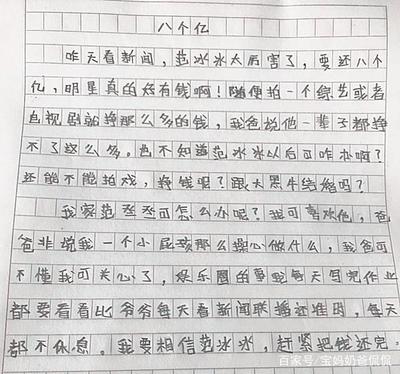 八个亿
昨天看新闻，范冰冰太厉害了，要还八个
亿，明星真的好有钱啊！随便拍一个综艺或者
电视剧就挣那么多的钱，我爸说他一辈子都挣
不了这么多。也不知道范冰冰以后可咋办啊？
还能不能拍戏，挣钱呢？跟大黑牛结婚吗？
我家范丞丞可怎么办呢？我可喜欢他，爸
爸非说我一个小屁孩那么操心做什么，我爸可
不懂我可关心了，娱乐圈的事我每天写完作业
都要看看比爷爷每天看新闻联播还准时，每天
都不休息。我要相信范冰冰，赶紧把钱还完。
百家号/宝妈奶爸侃侃